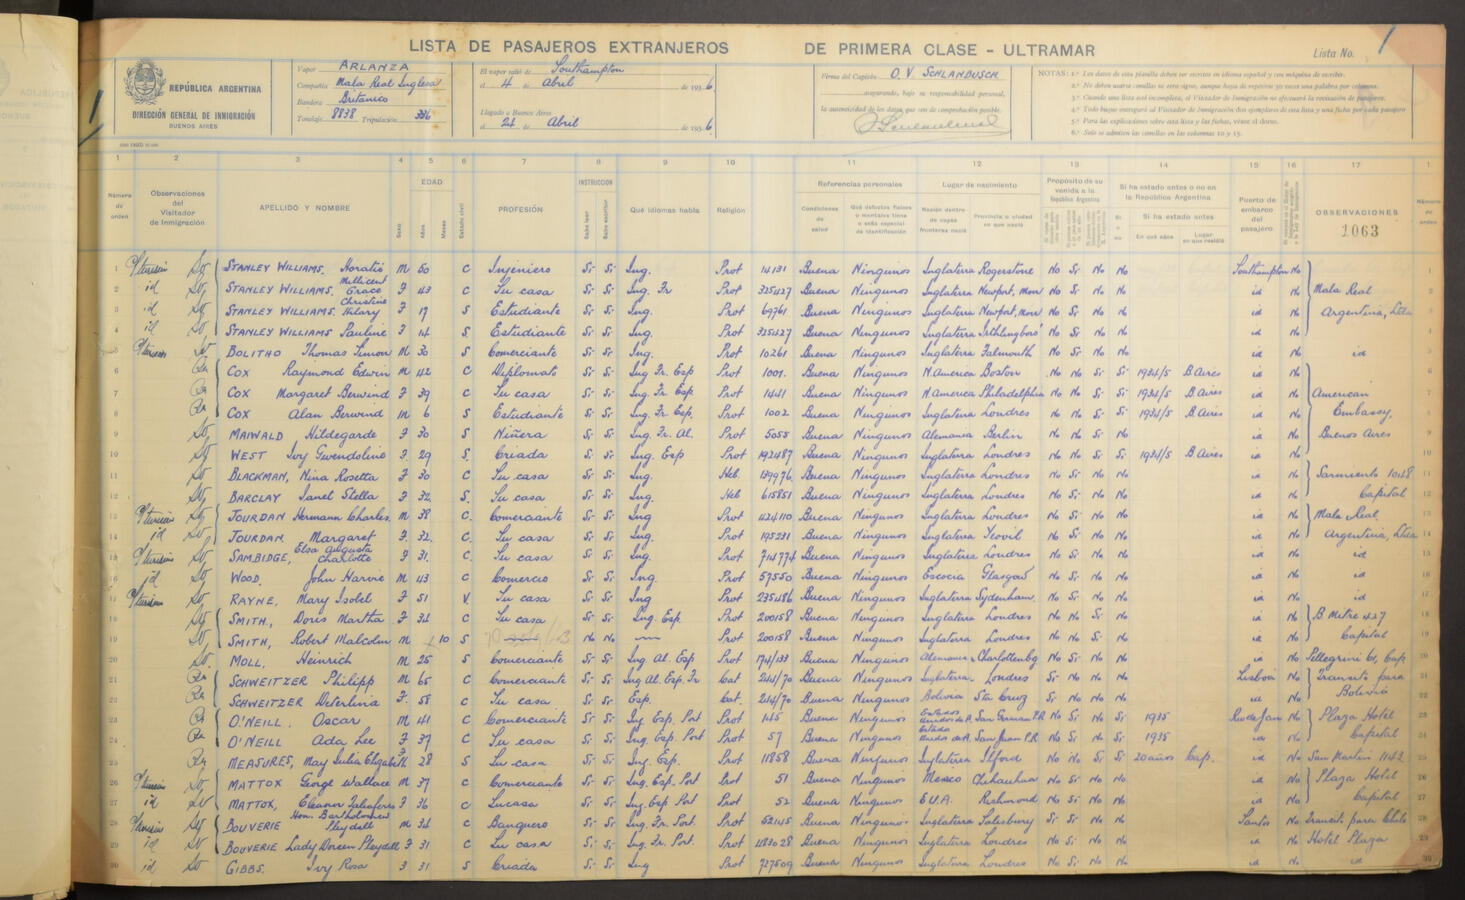 LISTA DE PASAJEROS EXTRANJEROS DE PRIMERA CLASE - ULTRAMAR
Lista No. 1
1
REPÚBLICA ARGENTINA
DIRECCIÓN GENERAL DE INMIGRACIÓN
BUENOS AIRES
Vapor ARLANZA
Compañía Mala Real Inglesa
Bandera Britanico
Tonelaje 8838 Tripulación 336
El vapor salió de Southampton
el 4 de Abril de 1936
Llegado a Buenos Aires
el 24 de Abril de 1936
Firma del Capitán O. V SCHLANBUSCH
asegurando, bajo su responsabilidad personal,
la autenticidad de los datos que son de comprobación posible.
NOTAS: 1.° Los datos de esta planilla deben ser escritos en idioma español y con máquina de escribir.
2.° No deben usarse comillas u otro signo, aunque haya de repetirse 90 veces una palabra por columna.
3.° Cuando una lista esté incompleta, el Visitador de Inmigración no efectuará la revisación de pasajeros.
4.° Todo buque entregará al Visitador de Inmigración dos ejemplares de esta lista y una ficha por cada pasajero
5.° Para las explicaciones sobre esta lista y las fichas, véase el dorso.
6.° Solo se admiten las comillas en las columnas 10 y 15.
1 2 3 4 5 6 7 8 9 10 11 12 13 14 15 16 17 1
Número de orden
Observaciones del Visitador de Inmigración
APELLIDO Y NOMBRE
Sexo
EDAD
Años
Meses
Estado civil
PROFESIÓN
INSTRUCCION
Sabe leer
Sabe escribir
Qué idiomas habla
Religión
Referencias personales
Condiciones de salud
Qué defectos físicos o mentales tiene o seña especial de identificación
Lugar de nacimiento
Nación dentro de cuyas fronteras nació
Provincia o ciudad en que nació
Propósito de su venida a la República Argentina
Si ha estado antes o no en la República Argentina
Si o no
Si ha estado antes
En qué años
Lugar en que residió
Puerto de embarco del pasajero
OBSERVACIONES
1063
Número de orden
1 STANLEY WILLIAMS. Horatio M 50 C Injeniero Si Si Ing. Prot 14131 Buena Ningunos Inglaterra Rogerstone No Si No No Southampton No
2 id STANLEY WILLIAMS. Millicent Grace Christine F 43 C Su casa Si Si Ing. Fr Prot 325427 Buena Ningunos Inglaterra Newport, Mon No Si No No id No Mala Real
3 id STANLEY WILLIAMS. Hilary F 19 S Estudiante Si Si Ing. Prot 69761 Buena Ningunos Inglaterra Newport, Mon No Si No No id No Argentina, Ltda
4 id STANLEY WILLIAMS Pauline F 14 S Estudiante Si Si Ing. Prot 325427 Buena Ningunos Inglaterra No Si No No id No
5 BOLITHO Thomas Simon M 30 S Comerciante Si Si Ing. Prot 10261 Buena Ningunos Inglaterra Falmouth No Si No No id No id
6 COX Raymond Edwin M 42 C Diplomato Si Si Ing Fr. Esp Prot 1001. Buena Ningunos N. America Boston No No Si Si 1934/5 B Aires id No
7 COX Margaret Berwind F 39 C Su casa Si Si Ing. Fr. Esp Prot 1441 Buena Ningunos N. America Philadelphia No No Si Si 1934/5 B Aires id No American
8 COX Alan Berwind M 6 S Estudiante Si Si Ing. Fr. Esp, Prot 1002 Buena Ningunos Inglaterra Londres No No Si Si 1934/5 B Aires id No Embassy.
9 MAIWALD Hildegarde F 30 S Niñera Si Si Ing. Fr. Al. Prot 5055 Buena Ningunos Alemania Berlin No No Si No id No Buenos Aires
10 WEST Ivy Gwendoline F 29 S. Criada Si Si Ing. Esp Prot 192487 Buena Ningunos Inglaterra Londres No No Si Si 1934/5 B Aires id No
11 BLACKMAN, Nina Rosetta F 30 C Su casa Si Si Ing. Heb. 139976 Buena Ningunos Inglaterra Londres No Si No No id No Sarmiento 1048
12 BARCLAY Janet Stella F 32. S. Su casa Si Si Ing. Heb 615851 Buena Ningunos Inglaterra Londres No Si No No id No Capital
13 JOURDAN Hermann Charles. M 38 C. Comerciante Si Si Ing Prot 424110 Buena Ningunos Inglaterra Londres No Si No No id No Mala Real.
14 id JOURDAN Margaret F 32. C. Su casa Si Si Ing. Prot 195231 Buena Ningunos Inglaterra Yeovil No Si No No id No Argentina, Ltda
15 SAMBIDGE, Elsa Augusta Charlotte F 31. C. Su casa Si Si Ing. Prot 714774 Buena Ningunos Inglaterra Londres No Si No No id No id
16 id WOOD, John Harvie M 43 C Comercio Si Si Ing Prot 59550 Buena Ningunos Escocia Glasgow No Si No No id No id
17 RAYNE, Mary Isobel F 51 V. Su casa Si Si Ing Prot 235486 Buena Ningunos Inglaterra Sydenham No Si No No id No id
18 SMITH, Doris Martha F 34 C Su casa Si Si Ing. Esp. Prot 200158 Buena Ningunos Inglaterra Londres No No Si No id No B. Mitre 427
19 SMITH, Robert Malcolm M 10 S No No Prot 200158 Buena Ningunos Inglaterra Londres No No Si No id No Capital
20 MOLL, Heinrich M 25 S Comerciante Si Si Ing Al. Esp Prot 174/133 Buena Ningunos Alemania Charlottenbg No Si No No id No Pellegrini 61, Cap
21 SCHWEITZER Philipp M 65 C Comerciante Si Si Ing Al. Esp. Fr Cat 244/70 Buena Ningunos Inglaterra Londres Si No No No Lisboa No Transito para
22 SCHWEITZER F. 55 C Su casa Si Si Esp. Cat. 244/70 Buena Ningunos Bolivia Sta Cruz Si No No No id No Bolivia
23 O'NEILL. Oscar M 41 C Comerciante Si Si Ing Esp. Port Prot 145 Buena Ningunos San German P.R No Si No Si 1935 Rio de Jan No Plaza Hotel
24 O'NEILL Ada Lee F 37 C Su casa Si Si Ing. Esp. Port Prot 57 Buena Ningunos San Juan P.R No Si No Si 1935 id No Capital
25 MEASURES, May Julia Elizabeth F 28 S Su casa Si Si Ing. Esp. Prot 11858 Buena Ningunos Inglaterra Ilford No No Si Si 20 años Cap. id No San Martin 1142
26 MATTOX George Wallace M 37 C Comerciante Si Si Ing. Esp. Port Prot 51 Buena Ningunos Mexico Chihuahua No Si No No id No Plaza Hotel
27 id MATTOX, Eleanor Taliaferro F 36 C Su casa Si Si Ing. Esp Port Prot 52 Buena Ningunos E.U.A. Richmond No Si No No id No Capital
28 BOUVERIE Hon. Bartholomew Pleydell M 34 C Banquero Si Si Ing. Fr. Port. Prot 52145 Buena Ningunos Inglaterra Salesbury Si No No No Santos No Transito para Chile
29 id BOUVERIE Lady Doreen Pleydell F 31 C Su casa Si Si Ing. Fr. Port. Prot 1183028 Buena Ningunos Inglaterra Londres No Si No No id No Hotel Plaza
30 id GIBBS. Ivy Rosa F 31 S Criada Si Si Ing Prot 727509 Buena Ningunos Inglaterra Londres No Si No No id No id